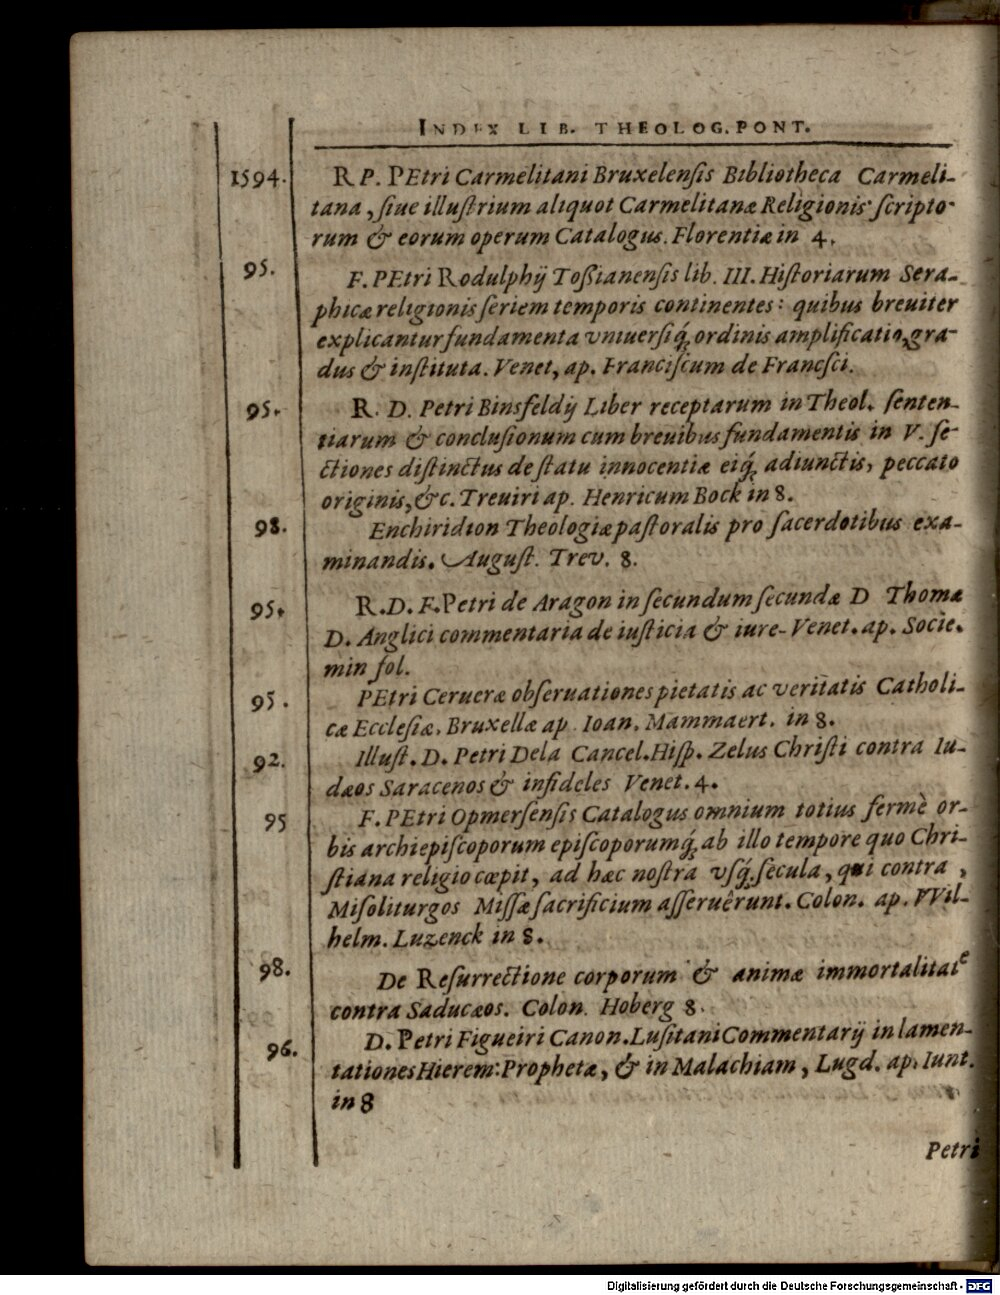 INDEX LIB. THEOLOG. PONT.
1594. R P. PEtri Carmelitani Bruxelenſis Bibliotheca Carmeli-
tana, ſiue illuſtrium aliquot Carmelitanæ Religionis ſcripto-
rum & eorum operum Catalogus. Florentiæ in 4.
95. F. PEtri Rodulphij Toßianenſis lib. III. Hiſtoriarum Sera-
phicæ religionis ſeriem temporis continentes: quibus breuiter
explicantur fundamenta vniuerſiq́; ordinis amplificatio, gra-
dus & inſtituta. Venet, ap. Franciſcum de Francſci.
95. R. D. Petri Binsfeldij Liber receptarum in Theol. ſenten-
tiarum & concluſionum cum breuibus fundamentis in V. ſe-
ctiones diſtinctus de ſtatu innocentiæ eiq́; adiunctis, peccato
originis, &c. Treuiri ap. Henricum Bock in 8.
98. Enchiridion Theologiæ paſtoralis pro ſacerdotibus exa-
minandis. Auguſt. Trev. 8.
95. R. D. F. Petri de Aragon in ſecundum ſecundæ D Thomæ
D. Anglici commentaria de iuſticia & iure- Venet. ap. Socie.
min fol.
95. PEtri Cerueræ obſeruationes pietatis ac veritatis Catholi-
cæ Eccleſiæ. Bruxellæ ap. Ioan. Mammaert. in 8.
92. Illuſt. D. Petri Dela Cancel. Hiſp. Zelus Chriſti contra Iu-
dæos Saracenos & infideles Venet. 4.
95 F. PEtri Opmerſenſis Catalogus omnium totius fermè or-
bis archiepiſcoporum epiſcoporumq́; ab illo tempore quo Chri-
ſtiana religio cœpit, ad hæc noſtra vſq́; ſecula, qui contra,
Miſoliturgos Miſſæ ſacrificium aſſeruêrunt. Colon. ap. VVil-
helm. Luzenck in 8.
98. De Reſurrectione corporum & animæ immortalitate
contra Saducæos. Colon. Hoberg 8.
96. D. Petri Figueiri Canon. Luſitani Commentarij in lamen-
tationes Hierem: Prophetæ, & in Malachiam, Lugd. ap. Iunt.
in 8
Petri
Digitalisierung gefördert durch die Deutsche Forschungsgemeinschaft - DFG